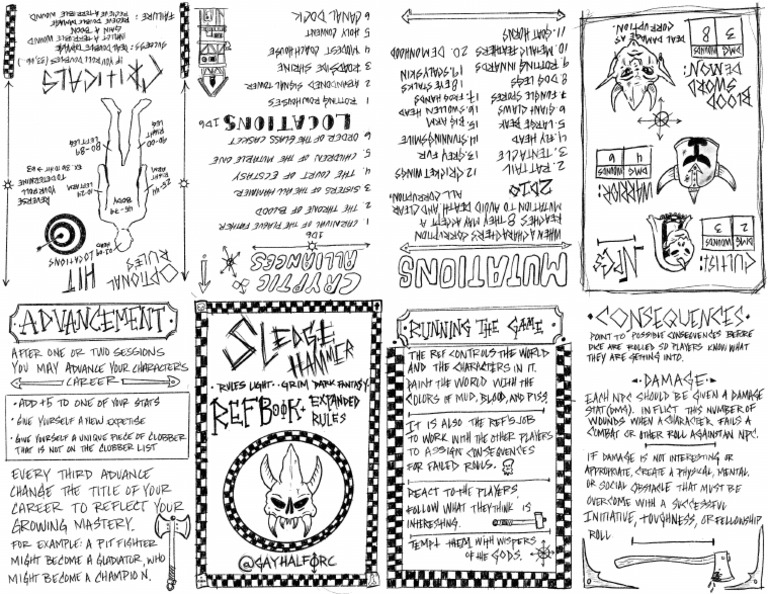 OPTIONAL
HIT
LOCATIONS
01-09 HEAD
REVERSE
YOUR ROLL
TO DETERMINE
10-24
LEFT ARM
RIGHT
ARM
45-79
BODY
80-89
LEFT LEG
90-00
RIGHT
LEG
CRITICALS
IF YOU ROLL DOUBLES
SUCCESS: DEAL DOUBLE DAMAGE
INFLICT A TERRIBLE WOUND
GAIN A BOON
FAILURE: RECEIVE DOUBLE DAMAGE
RECEIVE A TERRIBLE WOUND
CRYPTIC
ALLIANCES
1D6
1. CRANIUM OF THE PLAGUE FATHER
2. THE THRONE OF BLOOD
3. SISTERS OF THE RAM HAMMER
4. THE COURT OF ECSTASY
5. CHILDREN OF THE NUBILE ONE
6 ORDER OF THE GLASS CASKET
LOCATIONS 1D6
1 ROTTING ROWHOUSES
2 ABANDONED SIGNAL TOWER
3 ROADSIDE SHRINE
4 MODEST COACHOUSE
5 HOLY CONVENT
6 CANAL DOCK
MUTATIONS
WHEN A CHARACTER'S CORRUPTION
REACHES 8 THEY MAY ACCEPT A
MUTATION TO AVOID DEATH AND CLEAR
ALL CORRUPTION.
2D10
2. RATTAIL
3. TENTACLE
4. FLY HEAD
5. LARGE BEAK
6 GIANT CLAWS
7 FUNGLE SPORES
8 DOG LEGS
9 ROTTING INNARDS
10. MEDLIC FEATHERS
11. GOAT HORNS
12. CRICKET WINGS
13. GREY FUR
14. STUNNING SMILE
15. BIG ARM
16 SWOLLEN HEAD
17. FROG HANDS
18 EYE STALKS
19. SCALY SKIN
20. DEMONHOOD
NPCS
CULTIST:
DMG WOUNDS
2 3
WARRIOR:
DMG WOUNDS
4 6
BLOOD
SWORD
DEMON:
DMG WOUNDS
3 8
DEAL DAMAGE AS
CORRUPTION.
ADVANCEMENT
AFTER ONE OR TWO SESSIONS
YOU MAY ADVANCE YOUR CHARACTERS
CAREER
• ADD +5 TO ONE OF YOUR STATS
• GIVE YOURSELF A NEW EXPETISE
• GIVE YOURSELF A UNIQUE PIECE OF CLOBBER
THAT IS NOT ON THE CLOBBER LIST
EVERY THIRD ADVANCE
CHANGE THE TITLE OF YOUR
CAREER TO REFLECT YOUR
GROWING MASTERY.
FOR EXAMPLE: A PIT FIGHTER
MIGHT BECOME A GLADIATOR, WHO
MIGHT BECOME A CHAMPION.
SLEDGE
HAMMER
• RULES LIGHT • GRIM DARK FANTASY
REF BOOK • EXPANDED
RULES
@GAYHALFORC
RUNNING THE GAME
THE REF CONTROLS THE WORLD
AND THE CHARACTERS IN IT.
PAINT THE WORLD WITH THE
COLORS OF MUD, BLOOD, AND PISS.
IT IS ALSO THE REF'S JOB
TO WORK WITH THE OTHER PLAYERS
TO ASSIGN CONSEQUENCES
FOR FAILED ROLLS.
REACT TO THE PLAYERS,
FOLLOW WHAT THEY THINK IS
INTERESTING.
TEMPT THEM WITH WISPERS
OF THE GODS.
• CONSEQUENCES •
POINT TO POSSIBLE CONSEQUENCES BEFORE
DICE ARE ROLLED SO PLAYERS KNOW WHAT
THEY ARE GETTING INTO.
DAMAGE
EACH NPC SHOULD BE GIVEN A DAMAGE
STAT (DMG). INFLICT THIS NUMBER OF
WOUNDS WHEN A CHARACTER FAILS A
COMBAT OR OTHER ROLL AGAINST AN NPC.
IF DAMAGE IS NOT INTERESTING OR
APPROPRIATE, CREATE A PHYSICAL, MENTAL,
OR SOCIAL OBSTACLE THAT MUST BE
OVERCOME WITH A SUCCESSFUL
INITIATIVE, TOUGHNESS, OR FELLOWSHIP
ROLL